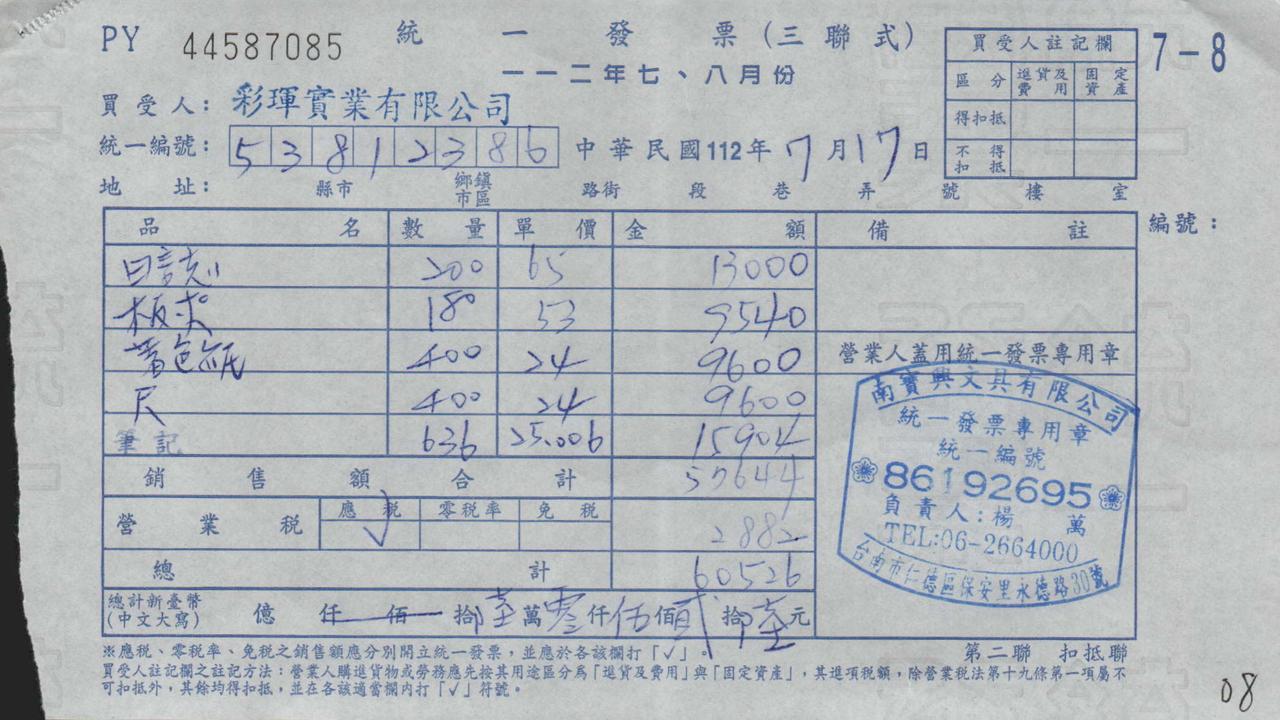 PY 44587085 統一發票(三聯式)
一一二年七、八月份
7-8
買受人註記欄
區分 進貨及費用 固定資產
得扣抵
不得扣抵
買受人: 彩琿實業有限公司
統一編號: 53812386 中華民國112年7月17日
地址: 縣市 鄉鎮市區 路街 段 巷 弄 號 樓 室
品名 數量 單價 金額 備註 編號:
200 65 13000
板求 180 53 9540
黃色紙 400 24 9600
尺 400 24 9600
筆記 636 25.006 15904
銷售額合計 57644
營業稅 應稅 √ 零稅率 免稅 2882
總計 60526
總計新臺幣(中文大寫) 億 仟 佰 拾 陸萬零仟伍佰貳拾陸元
營業人蓋用統一發票專用章
南寶興文具有限公司
統一發票專用章
統一編號
86192695
負責人:楊 萬
TEL:06-2664000
台南市仁德區保安里永德路30號
※應稅、零稅率、免稅之銷售額應分別開立統一發票,並應於各該欄打「√」。
第二聯 扣抵聯
買受人註記欄之註記方法:營業人購進貨物或勞務應先按其用途區分為「進貨及費用」與「固定資產」,其進項稅額,除營業稅法第十九條第一項屬不
可扣抵外,其餘均得扣抵,並在各該適當欄內打「√」符號。
08